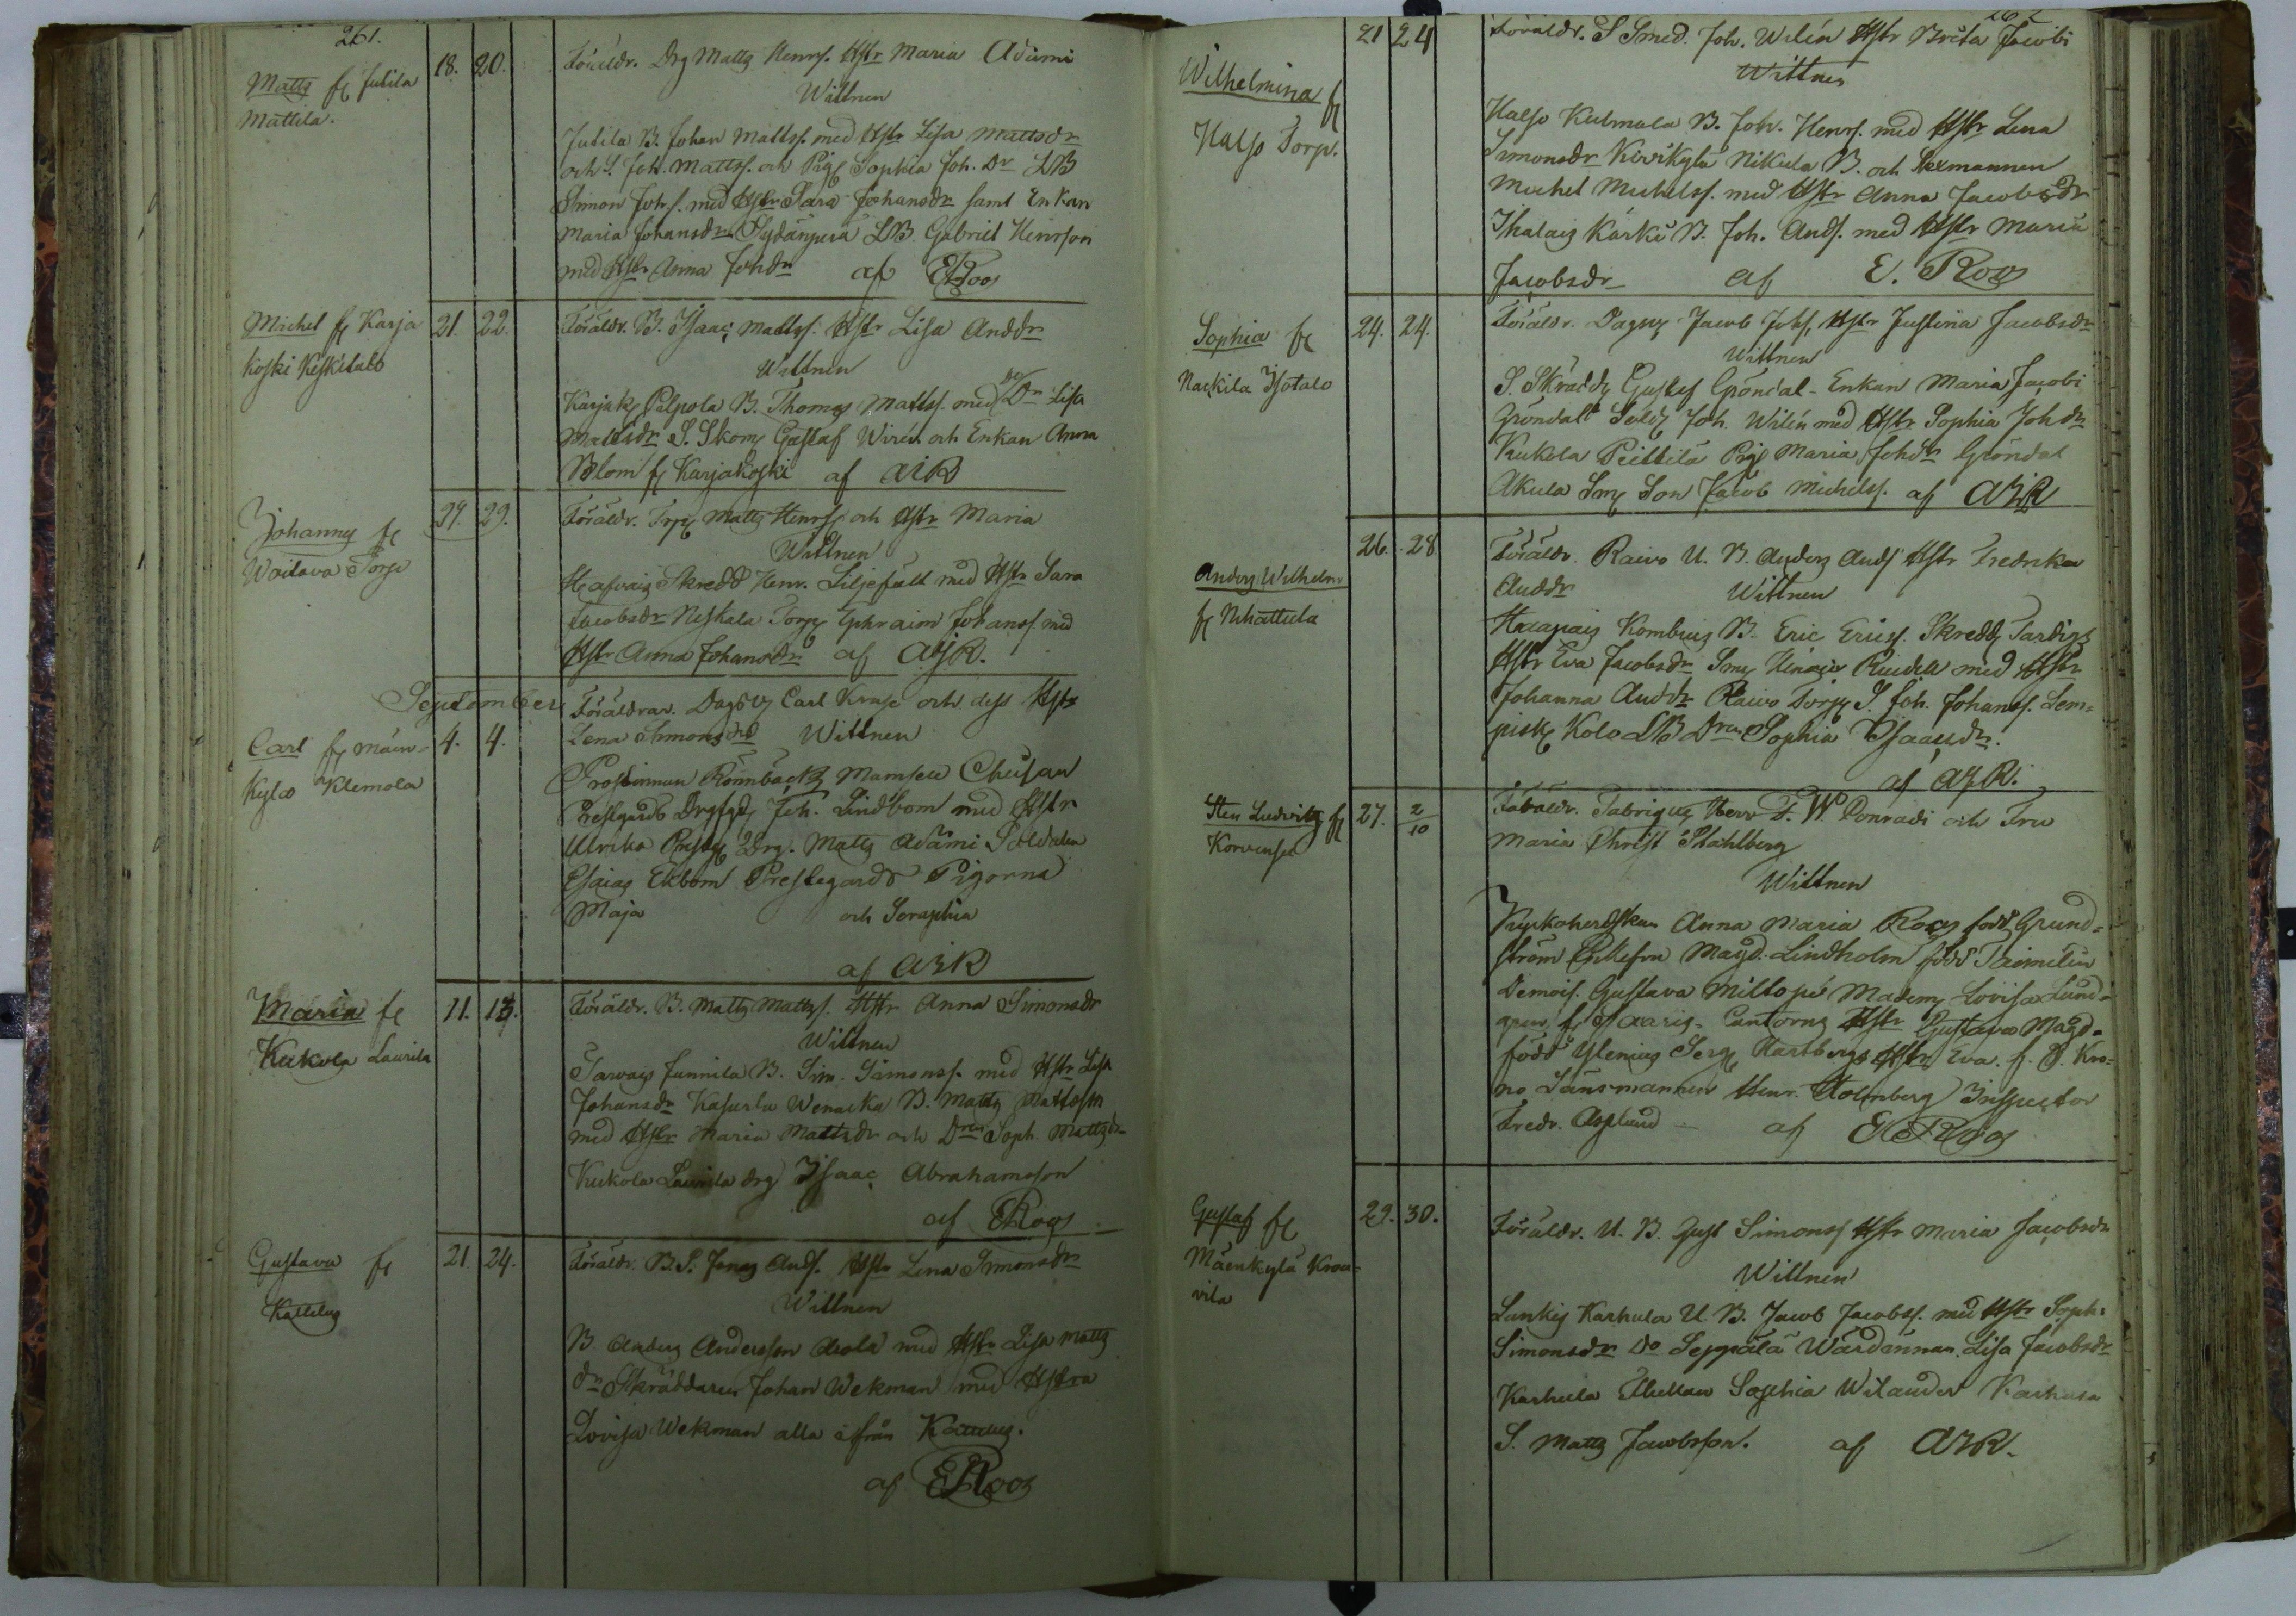 261.
Matts fr Jutila
Mattila.
18. 20.
Föräldr. Drg Matts Henrs. Hstr Maria Adami
Wittnen
Jutila B. Johan Mattss. med Hstr Lisa Mattsdr
och S. Joh. Mattss. och Pig Sophia Joh. Dr LB
Simon Johs. med Hstr Sara Johansdr samt Enkan
Maria Johansdr Sydänperä LB. Gabriel Henrson
med Hstr Anna Johdr af ERoos
Michel fr Karja
koski Keskitalo
21. 22.
Föräldr. B. Isaac Mattss. Hstr Lisa Anddr
Wittnen
Karjak Palpola B. Thomas Mattss. med Dr Lisa
Mattsdr S. Skom Gustaf Wirén och Enkan Anna
Blom fr Karjakoski af
Johannes fr
Woitava Torp
29. 29.
Föräldr. Trp Matts Henrss och Hstr Maria
Wittnen
Skredd Henr. Liljefält med Hstr Sara
Jacobsdr Torp Ephraim Johanss. med
Hstr Anna Johansdr af
September
Carl fr Mäen-
kylä Klemola
4. 4.
Föräldrar. Dagsv Carl Kruse och dess Hstr
Lena Simonsdr Wittnen
Prostinnan Rönnbäck Mamsell
Prestgårds Drgfgd Joh. Lindbom med Hstr
Ulrika Drg. Matts Adami Soldaten
Esaias Ekbom Prestegårds Pigorna
Maja och Seraphia
af
Maria fr
Kukola Laurila
11. 13.
Föräldr. B. Matts Mattss. Hstr Anna Simonsdr
Wittnen
Sarvags Junnila B. Sim. Simonss. med Hstr Lisa
Johansdr Kasurla Wenacka B. Matts Mattsson
med Hstr Maria Mattsdr och Drn Soph. Mattsdr
Kukola Laurila drg Isaac Abrahamsson
af ERoos
Gustava fr
Kattelus
21. 24.
Föräldr. B. S. Jonas Ands. Hstr Lena Simonsdr
Wittnen
B. Anders Andersson Aola med Hstr Lisa Matts
dr Skräddaren Johan Wekman med Hstro
Lovisa Wekman alla ifrån Kattelus.
af ERoos
262
Wilhelmina fr
Halso Torp.
21 24
Föräldr. S Smed. Joh. Wilén Hstr Brita Jacobi
Wittnen
Halso Kulmala B. Joh. Henrs. med Hstr Lena
Simonsdr Kivikylä Nikula B. och Sexmannen
Michel Michelss. med Hstr Anna Jacobsdr
Ihalais Karki B. Joh. Ands. med Hstr Maria
Jacobsdr af E. Roos
Sophia fr
Naskila Isotalo
24. 24.
Föräldr. Dagsv Jacob Johs, Hstr Justina Jacobsdr
Wittnen
S. Skrädd Gustaf Gröndal - Enkan Maria Jacobi
Gröndal Sold Joh. Wilén med Hstr Sophia Johdr
Kukola Peittilä Pig Maria Johdr Gröndal
Akula Smy Son Jacob Michelss. af
Anders Wilhelm
fr Nihattula
26. 28.
Föräldr. Raivo U. B. Anders Ands Hstr Fredrika
Anddr Wittnen
Haapais Kombus B. Eric Ericss. Skredd Tardigs
Hstr Eva Jacobsdr Smy Rindell med Hstr
Johanna Anddr Raivo Torp S. Joh. Johanss. Lem-
pisk Kolo LB Drn Sophia Isaacsdr.
af
Sten Ludvig fr
Korvense
27. 2/10
Föräldr. Fabriqus Herr F. W. Conradi och Fru
Maria Christ Stahlberg
Wittnen
Kyrkoherdskan Anna Maria Roos född Grund-
ström Magd. Lindholm född Taimelin
Demois. Gustava Miltopé Madem Lovisa Lund-
gren fr Saaris. Cantorns Hstr Gustava Magd.
född Ylenius Serg Hartbergs Hstr Eva. fr. S. Kro-
no Länsmannen Henr. Holmberg Inspector
Fredr. Asplund - af ERoos
Gustaf fr
Mäenkylä Kroa-
vila
29. 30.
Föräldr. U. B. Gust Simonss Hstr Maria Jacobsdr
Wittnen
Lankis Karhula U. B. Jacob Jacobss. med Hstr Soph.
Simonsdr Do Seppälä Wärdinnan Lisa Jacobsdr
Karhula Sophia Wilander Karhula
S. Matts Jacobsson. af